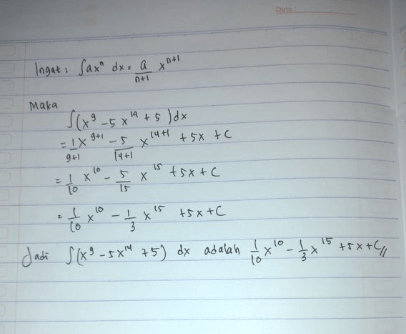 Ingat : ∫ax^n dx = a/(n+1) x^(n+1)
Maka
∫(x^9 - 5x^14 + 5)dx
= 1/(9+1) x^(9+1) - 5/(14+1) x^(14+1) + 5x + C
= 1/10 x^10 - 5/15 x^15 + 5x + C
= 1/10 x^10 - 1/3 x^15 + 5x + C
Jadi ∫(x^9 - 5x^14 + 5) dx adalah 1/10 x^10 - 1/3 x^15 + 5x + C //